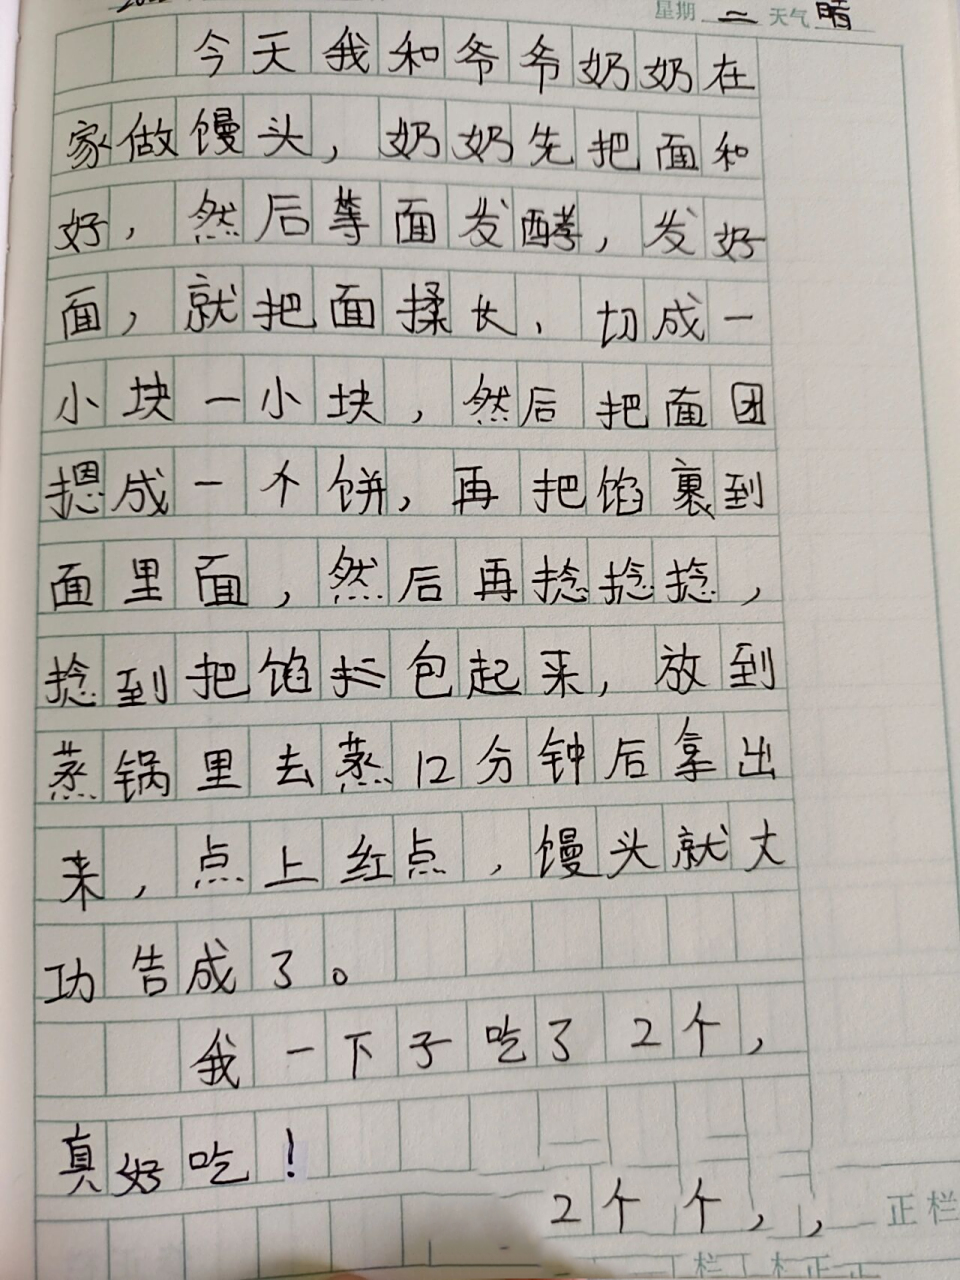 星期 二 天气 晴
今天我和爷爷奶奶在
家做馒头，奶奶先把面和
好，然后等面发酵，发好
面，就把面揉长，切成一
小块一小块，然后把面团
摁成一个饼，再把馅裹到
面里面，然后再捻捻捻，
捻到把馅拦包起来，放到
蒸锅里去蒸12分钟后拿出
来，点上红点，馒头就大
功告成了。
我一下子吃了2个，
真好吃！
2个个，，
正栏